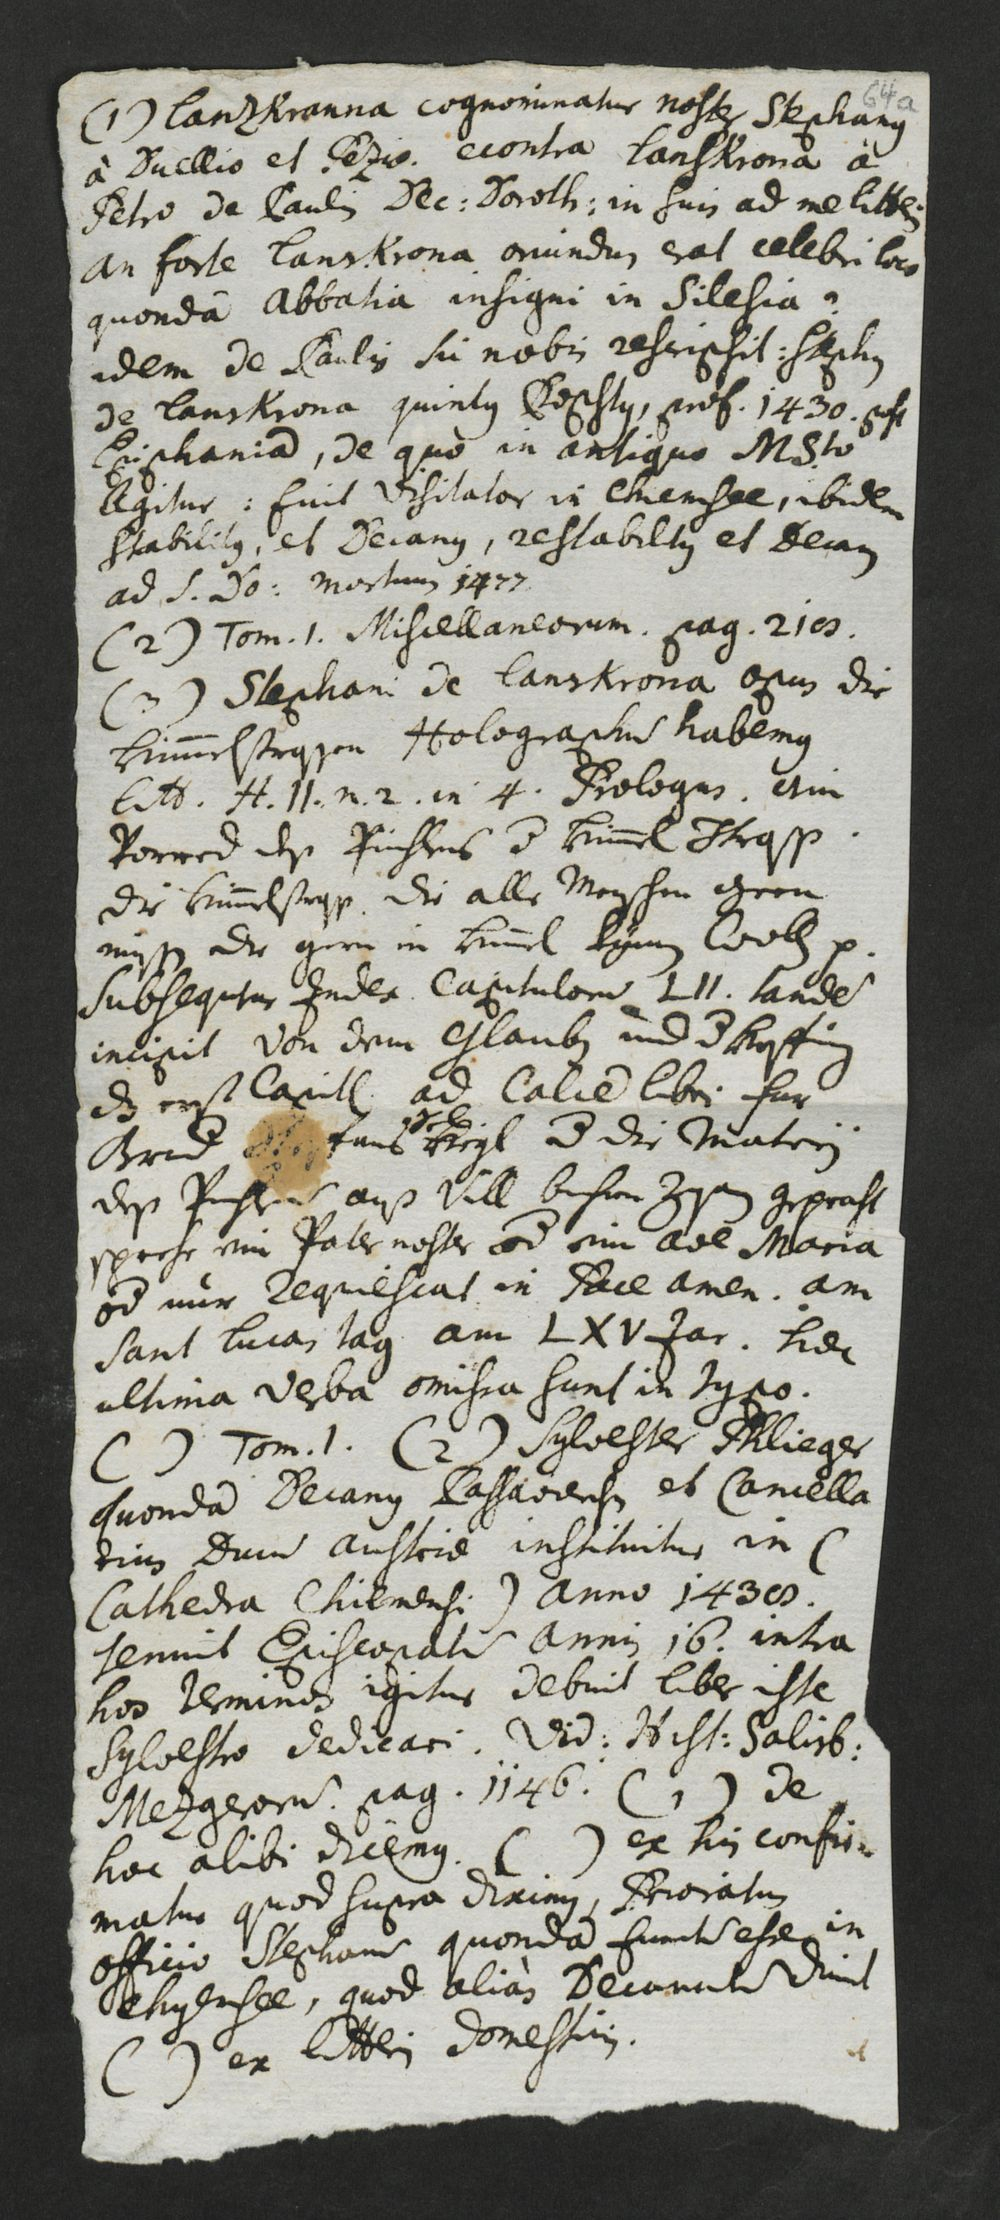 64a
(1) Lanzkranna cognominatur noster Stephanus
à Duellio et Pezio. econtra Lanskrona à
Petro de Paulis Dec: Doroth: in suis ad me litteris
an forte Lanskrona oriundus erat celebri loco
quondā Abbatia insigni in Silesia?
idem de Paulis sic nobis rescripsit: Stephs
de Lanskrona quintus Pbsty, prof. 1430. post
Epiphaniā, de quo in antiquo MSto
legitur: fuit visitator in Chiemsee, ibidem
stabilitus, et Decanus, restabiltus et Decanus
ad S. Do: mortuus 1477
(2) Tom. 1. Miscellaneorum. pag.
(3) Stephani de Lanskrona opus die
himmelstrassen Holographū habemus
litt. H. 11. n. 2. in 4. Prologus.
Vorred dess Puchss himel Strass.
die himelstrass. die alle Menschen
die gern in himel
Subsequitur Index Capitulorū LII. tandē
incipit Von dem Glauben und
dz erst Capitl. ad Calcē libri
die Matery
dess auss Vill
sprech ein Pater noster od ein ave Maria
od nur Requiescat in Pace amen. am
Sant Lucas tag am LXV Jar. haec
ultima verba omissa sunt in typo.
( ) Tom. 1. (2) Sylvester Phlieger
quondā Decanus Passaviensis et Cancella
rius Ducū Austriae instituitur in (
Cathedra Chiemensi) anno
tenuit Episcopatū annis 16. intra
hos terminos igitur debuit liber iste
Sylvestro dedicari. Vid: Hist: Salisb:
Mezgerorū. pag. 1146. (1) de
hoc alibi dicemus. ( ) ex his confir=
matur quod supra diximus, Prioratus
officio Stephanū quondā functū esse in
Chyemsee, quod aliàs Decanatū
( ) ex litteris domesticis.